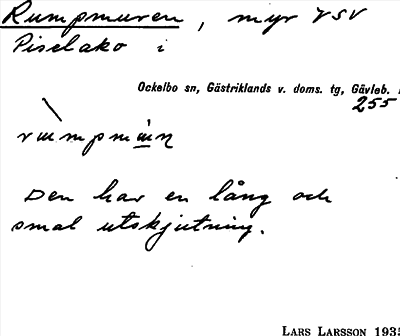 Rumpmuren, myr VSV
Piselako i
Ockelbo sn, Gästriklands v. doms. tg, Gävleb.
255
Den har en lång och
smal utskjutning.
LARS LARSSON 193